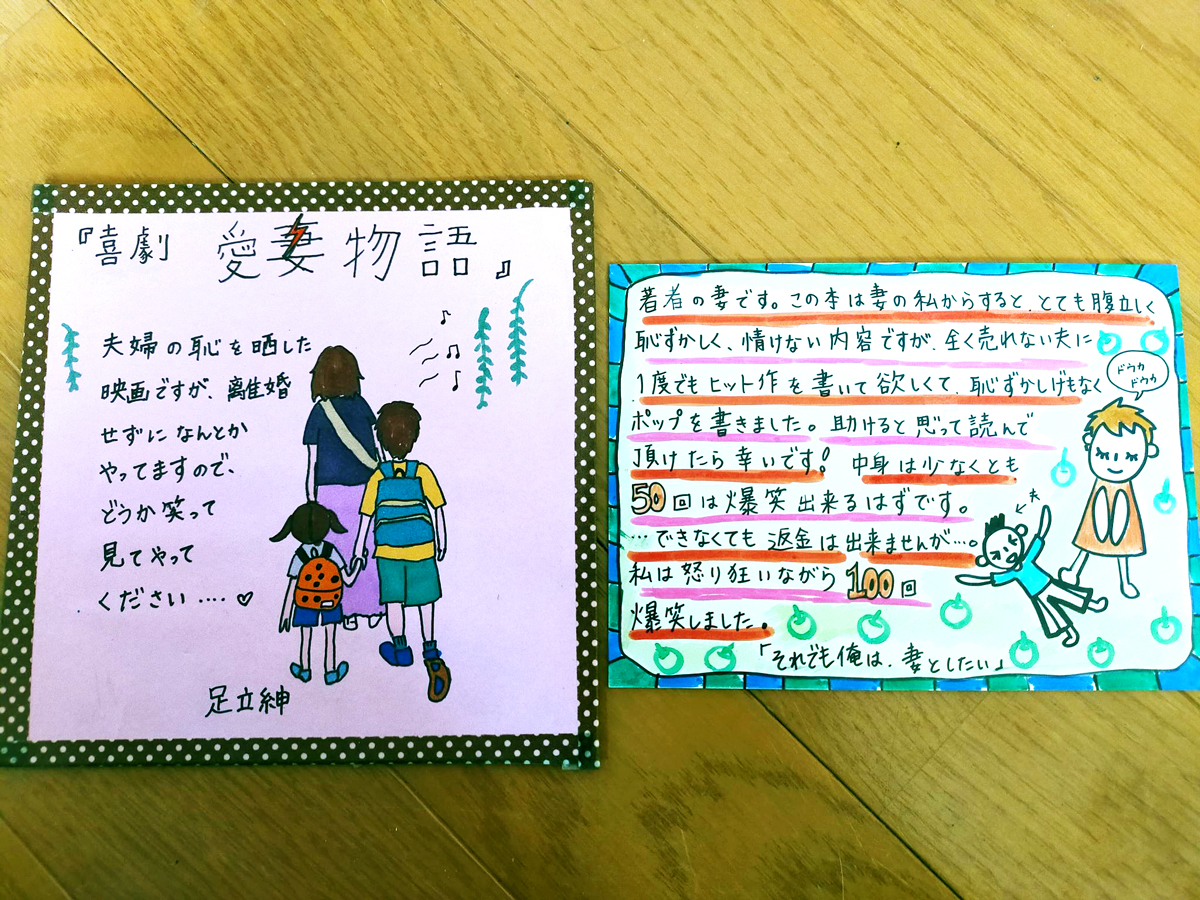 『喜劇 愛妻物語』
夫婦の恥を晒した
映画ですが、離婚
せずになんとか
やってますので、
どうか笑って
見てやって
ください….♡
足立紳
著者の妻です。この本は妻の私からすると、とても腹立しく
恥ずかしく、情けない内容ですが、全く売れない夫に
1度でもヒット作を書いて欲しくて、恥ずかしげもなく
ポップを書きました。助けると思って読んで
頂けたら幸いです! 中身は少なくとも
50回は爆笑出来るはずです。
…できなくても返金は出来ませんが…。
私は怒り狂いながら100回
爆笑しました。
「それでも俺は、妻としたい」
ドウカ
ドウカ
夫